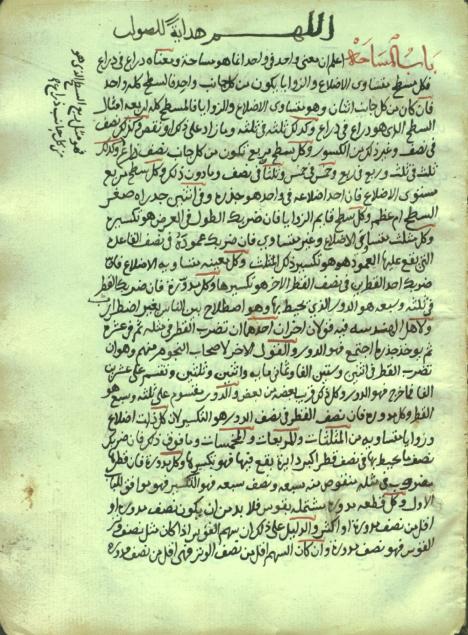 اللهم هداية للصواب
باب المساحة اعلم ان معنى واحد في واحد انما هو مساحة ومعناه ذراع في ذراع
فكل سطح متساوى الاضلاع والزوايا يكون من كل جانب واحد فالسطح كله واحد
فان كان من كل جانب اثنان وهو متساوى الاضلاع والزوايا فالسطح كله اربعة امثال
السطح الذى هو ذراع في ذراع وكذلك ثلثه في ثلثه وما زاد على ذلك او نقص وكذلك نصف
في نصف وغير ذلك من الكسور وكل سطح مربع يكون من كل جانب نصف ذراع
ثلث في ثلث وربع في ربع وخمس في خمس وثلثا في نصف وكل سطح مربع
متساوى الاضلاع فان احد اضلاعه في واحد هو جذره وفى اثنين جذراه صغر
السطح ام عظم وكل سطح قايم الزوايا فان ضربك الطول في العرض هو تكسيره
وكل مثلث متساوى الاضلاع وغير متساوى فان ضربك عموده في نصف القاعدة
التى يقع عليها العمود هو تكسير ذلك المثلث وكل معينه متساوية الاضلاع فان
ضربك احد القطرين في نصف القطر الاخر هو تكسيرها وكل مدورة فان ضربك القطر
في ثلثه وسبع هو الدور الذى يحيط بها وهو اصطلاح بين الناس بغير اضطرار
ولاهل الهندسه فيه قولان اخران احدهما ان تضرب القطر في مثله ثم في عشرة
ثم يوخذ جذر ما اجتمع فهو الدور والقول الاخر لاصحاب النجوم منهم وهو ان
تضرب القطر في اثنين وستين الفا وثمانى مايه واثنين وثلثين وتقسم على عشرين
الفا فما خرج فهو الدور وكل ذلك قريب بعضه من بعض والدور يقسوم على ثلثه وسبع هو
القطر وكل مدورة فان نصف القطر في نصف الدور هو التكسير لان كل ذات اضلاع
وزوايا متساويه من المثلثات والمربعات والمخمسات وما فوق ذلك فان ضربك
نصف ما يحيط بها في نصف قطر اكبر دايرة يقع فيها فهو تكسيرها وكل مدورة فان قطرها
مضروب في مثله منقوص منه سبعه ونصف سبعه فهو التكسير فهو موافق للباب
الاول وكل قطعه مدورة مشتمله بقوس فلا بد من ان يكون نصف مدورة او
اقل من نصف مدورة او اكثر والدليل على ذلك ان سهم القوس اذا كان مثل نصف
القوس فهو نصف مدورة وان كان السهم اقل من نصف الوتر فهى اقل من نصف مدورة